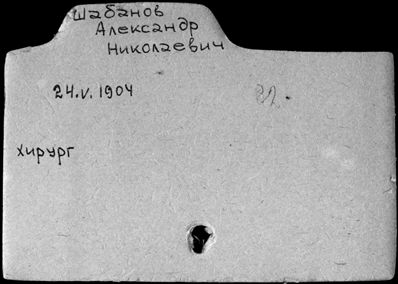 Шабанов
Александр
Николаевич
24.V.1904
хирург